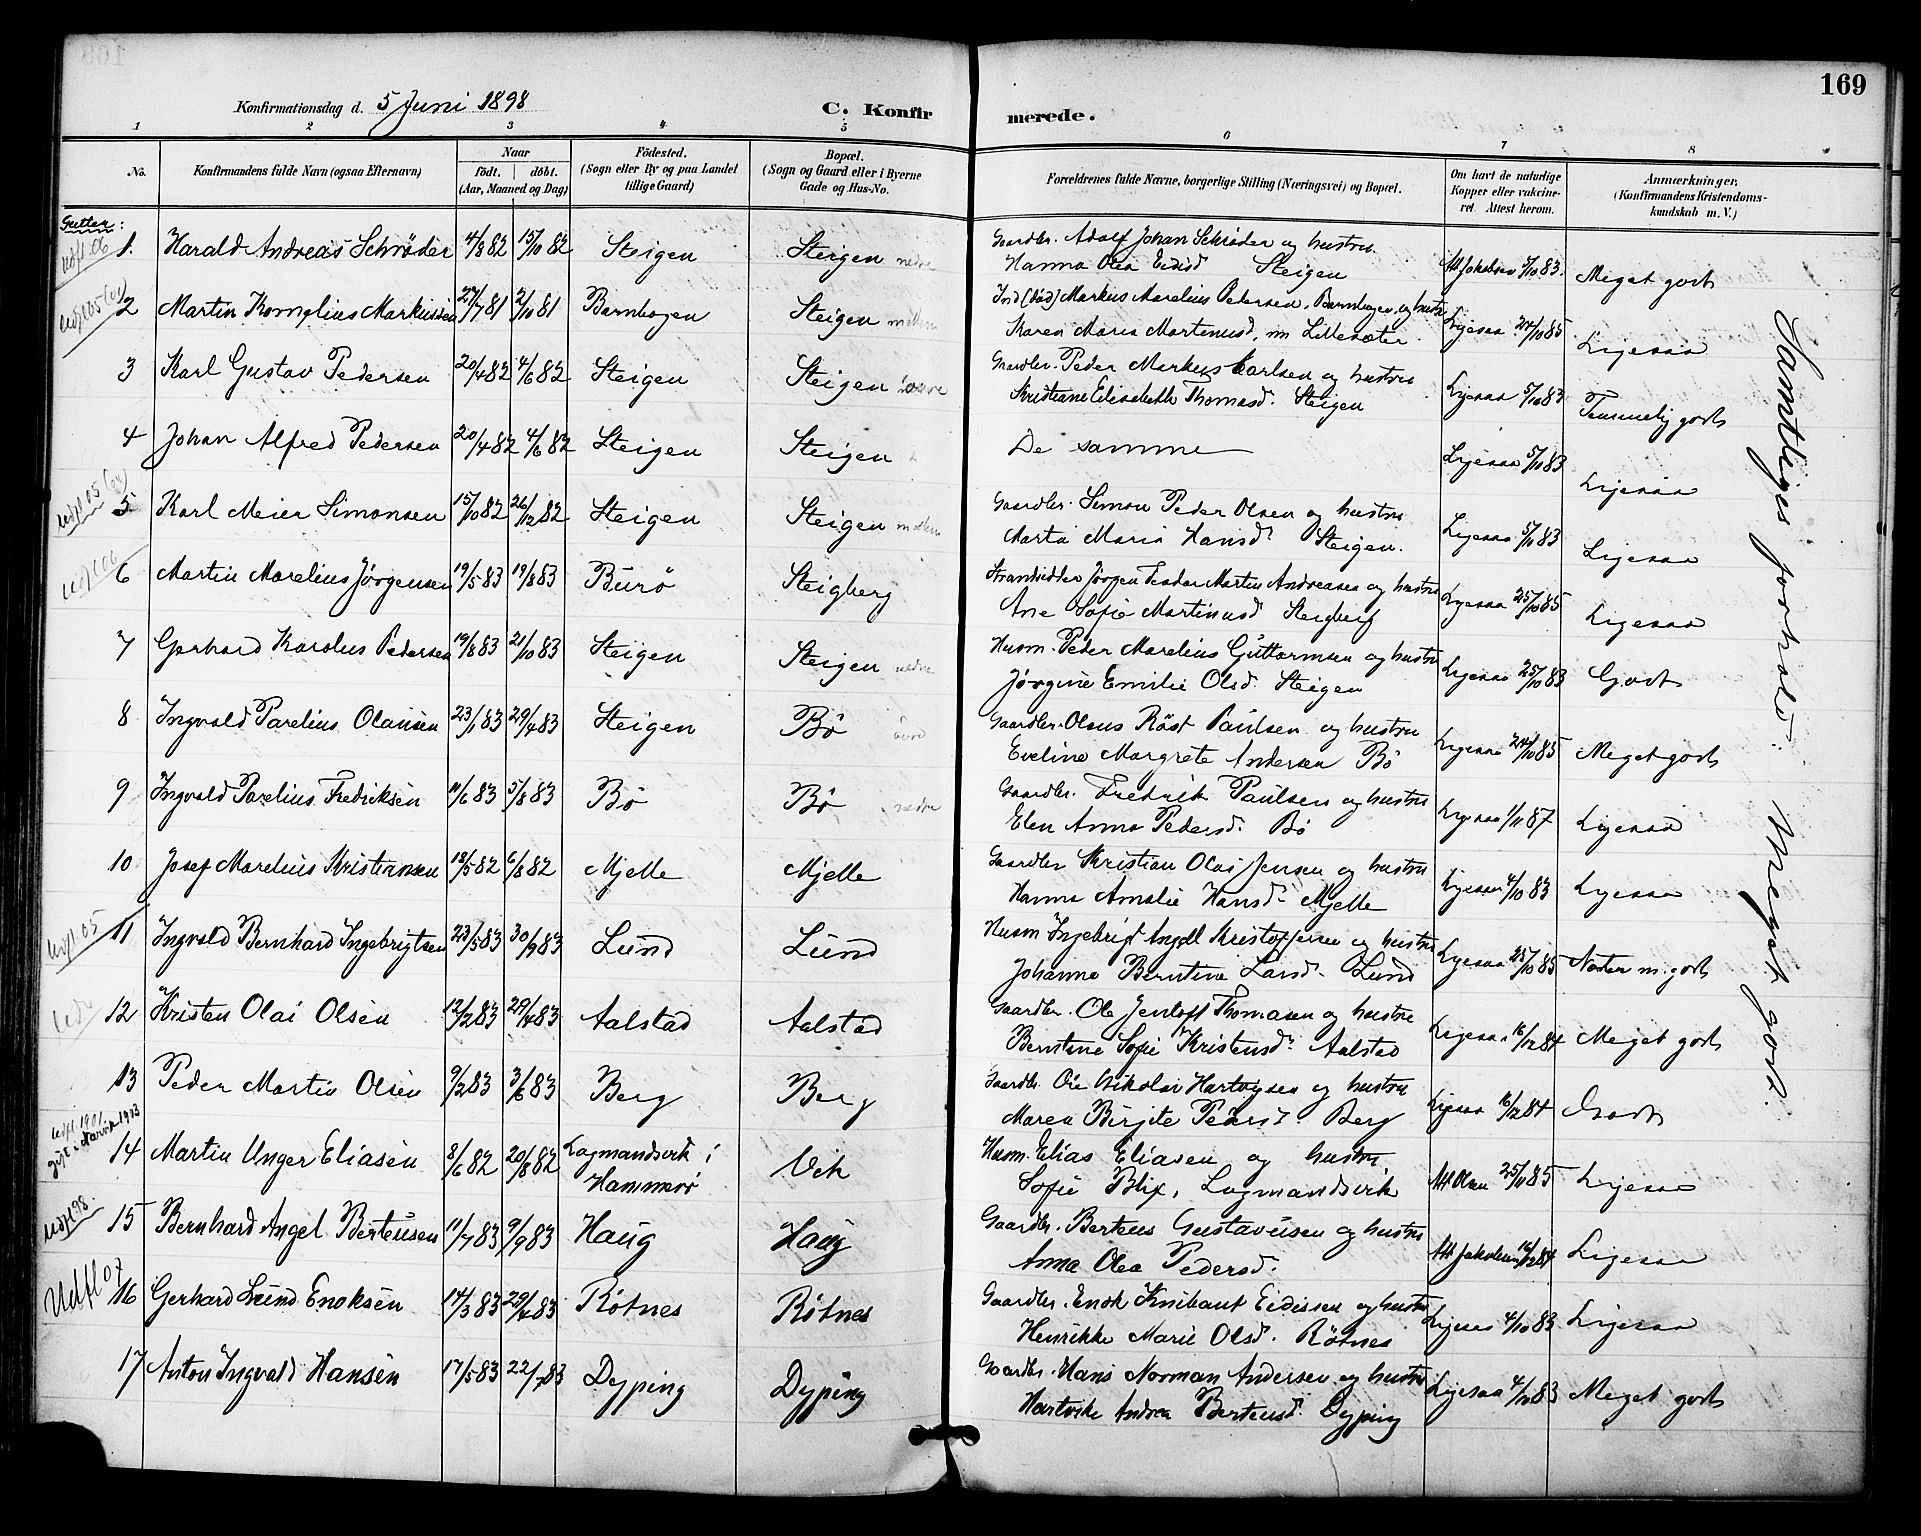 169
Konfirmationsdag d. 5 Juni 1898 C. Konfirmerede.
1 2 3 4 5 6 7 8
No. Konfirmandens fulde Navn (ogsaa Efternavn) Naar født. døbt. (Aar, Maaned og Dag) Födested. (Sogn eller By og paa Landet tillige Gaard) Bopæl. (Sogn og Gaard eller i Byerne Gade og Hus-No. Forældrenes fulde Navne, borgerlige Stilling (Næringsvei) og Bopæl. Om havt de naturlige Kopper eller vakcineret. Attest herom. Anmærkninger. (Konfirmandens Kristendomskundskab m. V.)
Gutter:
udfl. 06 1. Harald Andreas Schrøder 4/8 82 15/10 82 Steigen Steigen nedre Gaardbr. Adolf Johan Schrøder og hustru
Hanna Olea Eidisd Steigen Att Jakobsen 5/10 83. Meget godt
udfl 05 2 Martin Kornelius Markussen 27/7 81 2/10 81 Barnhogen Steigen mellem Ind (død) Markus Aarelius Pedersen, Barnhogen, og hustr
Karen Maria Martinusd, nu Lillesæter Ligesaa 24/10 85 Ligesaa
3 Karl Gustav Pedersen 20/4 82 4/6 82 Steigen Steigen Gaardbr. Peder Markus Karlsen og hustru
Kristiane Elisabeth Thomasd. Steigen Ligesaa 5/10 83 Temmelig godt
4 Johan Alfred Pedersen 20/4 82 4/6 82 Steigen Steigen De samme Ligesaa 5/10 83 Ligesaa
udfl 05 5 Karl Meier Simonsen 15/10 82 26/12 82 Steigen Steigen mellem Gaardbr. Simon Peder Olsen og hustru
Marta Maria Hansd. Steigen. Ligesaa 5/10 83 Ligesaa
udfl 06 6 Martin Marelius Jørgensen 19/5 83 19/8 83 Burø Steigberg Strandsidder Jørgen Teodor Martin Andreasen og hustru
Ane Sofie Martinusd Steigberg Ligesaa 25/10 85 Ligesaa
7 Gerhard Karolus Pedersen 19/8 83 21/10 83 Steigen Steigen nedre Husm. Peder Marelius Guttormsen og hustru
Jørgine Emilie Olsd. Steigen Ligesaa 25/10 83 Godt
8 Ingvald Parelius Olausen 23/1 83 29/4 83 Steigen Bø øvre Gaardbr. Olaus Røst Paulsen og hustru
Eveline Margrete Andersen Bø Ligesaa 24/10 85 Meget godt
9 Ingvald Parelius Fredriksen 11/6 83 5/8 83 Bø Bø nedre Gaardbr. Fredrik Paulsen og hustru
Elen Anna Pedersd. Bø Ligesaa 1/11 87 Ligesaa
10 Josef Marelius Kristiansen 18/5 82 6/8 82 Mjelle Mjelle Gaardbr Kristian Olai Jensen og hustru
Hanna Amalie Hansd. Mjelle Ligesaa 4/10 83 Ligesaa
udfl. 05 11 Ingvald Bernhard Ingebrigtsen 23/5 83 30/9 83 Lund Lund Husm Ingebrigt Angell Kristoffersen og hustru
Johanna Berntine Larsd. Lund Ligesaa 25/10 85 Næsten m. godt
12 Kristen Olai Olsen 12/2 83 29/4 83 Aalstad Aalstad Gaardbr. Ole Jentoft Thomasen og hustru
Berntine Sofie Kristensd. Aalstad Ligesaa 16/12 84 Meget godt
13 Peder Martin Olsen 9/2 83 3/6 83 Berg Berg Gaardbr. Ole Nikolai Hartvigsen og hustru
Maren Birgite Pedersd. Berg Ligesaa 16/12 84 Godt
udfl. 1901 gift i Narvik 1903 14 Martin Unger Eliasen 8/6 82 20/8 82 Lagmandsvik i Hammerø Vik Husm. Elias Eliasen og hustru
Sofie Blix, Lagmandsvik Att Olsen 25/11 85 Ligesaa
udfl 98. 15 Bernhard Angel Berteusen 11/7 83 9/9 83 Haug Haug Gaardbr. Berteus Gustavusen og hustru
Anna Olea Pedersd. Att Jakobsen 16/12 84 Ligesaa
Udfl 07 16 Gerhard Lund Enoksen 14/3 83 29/4 83 Røtnes Røtnes Gaardbr. Enok Knibaut Eidissen og hustru
Henrikke Marie Olsd. Røtnes Ligesaa 4/10 83 Ligesaa
17 Anton Ingvald Hansen 17/5 83 22/7 83 Dyping Dyping Gaardbr. Hans Norman Andersen og hustru
Hartvike Andrea Berteusd. Dyping Ligesaa 4/10 83 Meget godt
Samtliges forhold: Meget godt.